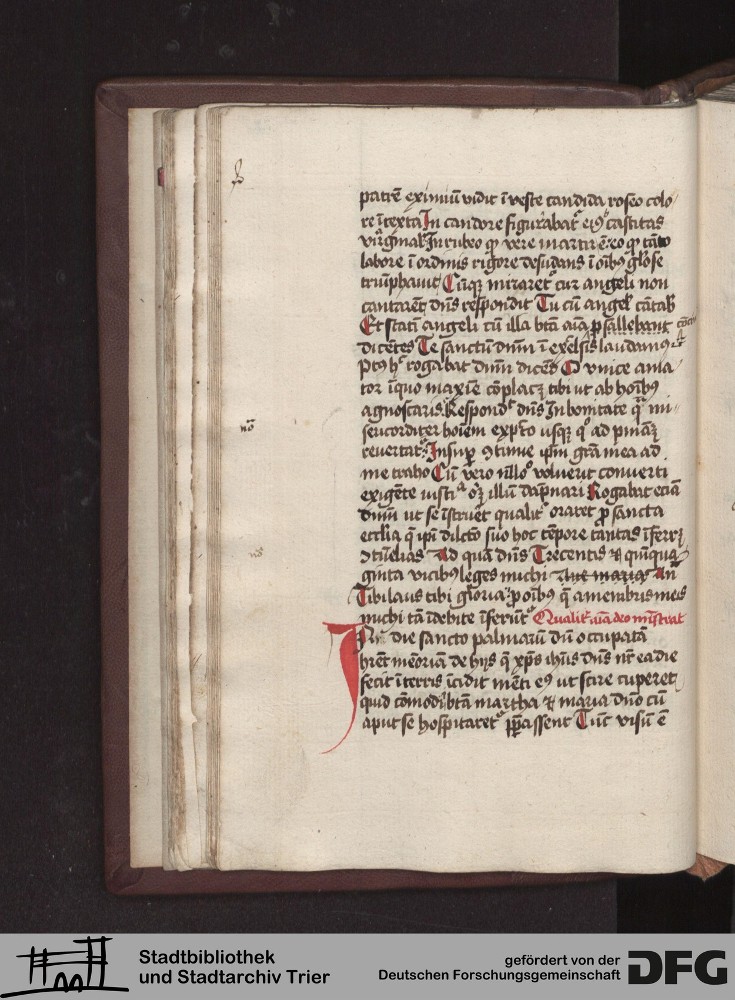 patrē eximiū vidit ī veste candida roseo colo
re ītexta In candore figurabatʳ eiꝰ castitas
virginal' In rubeo qͥ vere martir ē eo qͥ tāto
labore ī ordinis rigore desudans ī oībꝰ gl'ose
triūphauit Cūqꝫ miraretʳ cur angeli non
cantarēt dn̄s respondit Tu cū angel' cātab'
Et statī angeli cū illa btā aīa psallebant
dicētes Te sanctū dnm̄ ī exelsis laudamꝰ
rogabat dnm̄ dicēs O vnice ama
tor īquo maxīe cōplacꝫ tibi ut ab hoībꝰ
agnoscaris Respondͭ dn̄s In bonitate qͣ mi
sericorditer hoīem expc̄to usqꝫ qͦ ad pnīaꝫ
reuertatʳ Insuꝑ ꝯtinue ip̄m gr̄a mea ad
me traho Cū vero nll'oͦ voluerit conuerti
exigēte iusticͣ oꝫ illū dāpnari Rogabat eciā
dnm̄ ut se īstrueret qualitʳ oraret ꝓ sancta
eccl'ia
Ad quā dn̄s Trecentis ⁊ qūiqua
ginta vicibꝰ leges michi
Tibi laus tibi gloria ꝓ oībꝰ q̄ a menbris meis
michi tā īdebite īferūtʳ Qualitʳ
In die sancto palmarū dū occupatā
hr̄et memoriā de hijs q̄ xp̄s ih̄us dn̄s nr̄ ea die
fecit ī terris īcidit mēti eiꝰ ut scire cuperet
quid cōmodi btā martha ⁊ maria dn̄o cū
aput se hospitaretʳ p̄passent Tūc visū ē
nō
nō
Stadtbibliothek
und Stadtarchiv Trier
gefördert von der
Deutschen Forschungsgemeinschaft
DFG